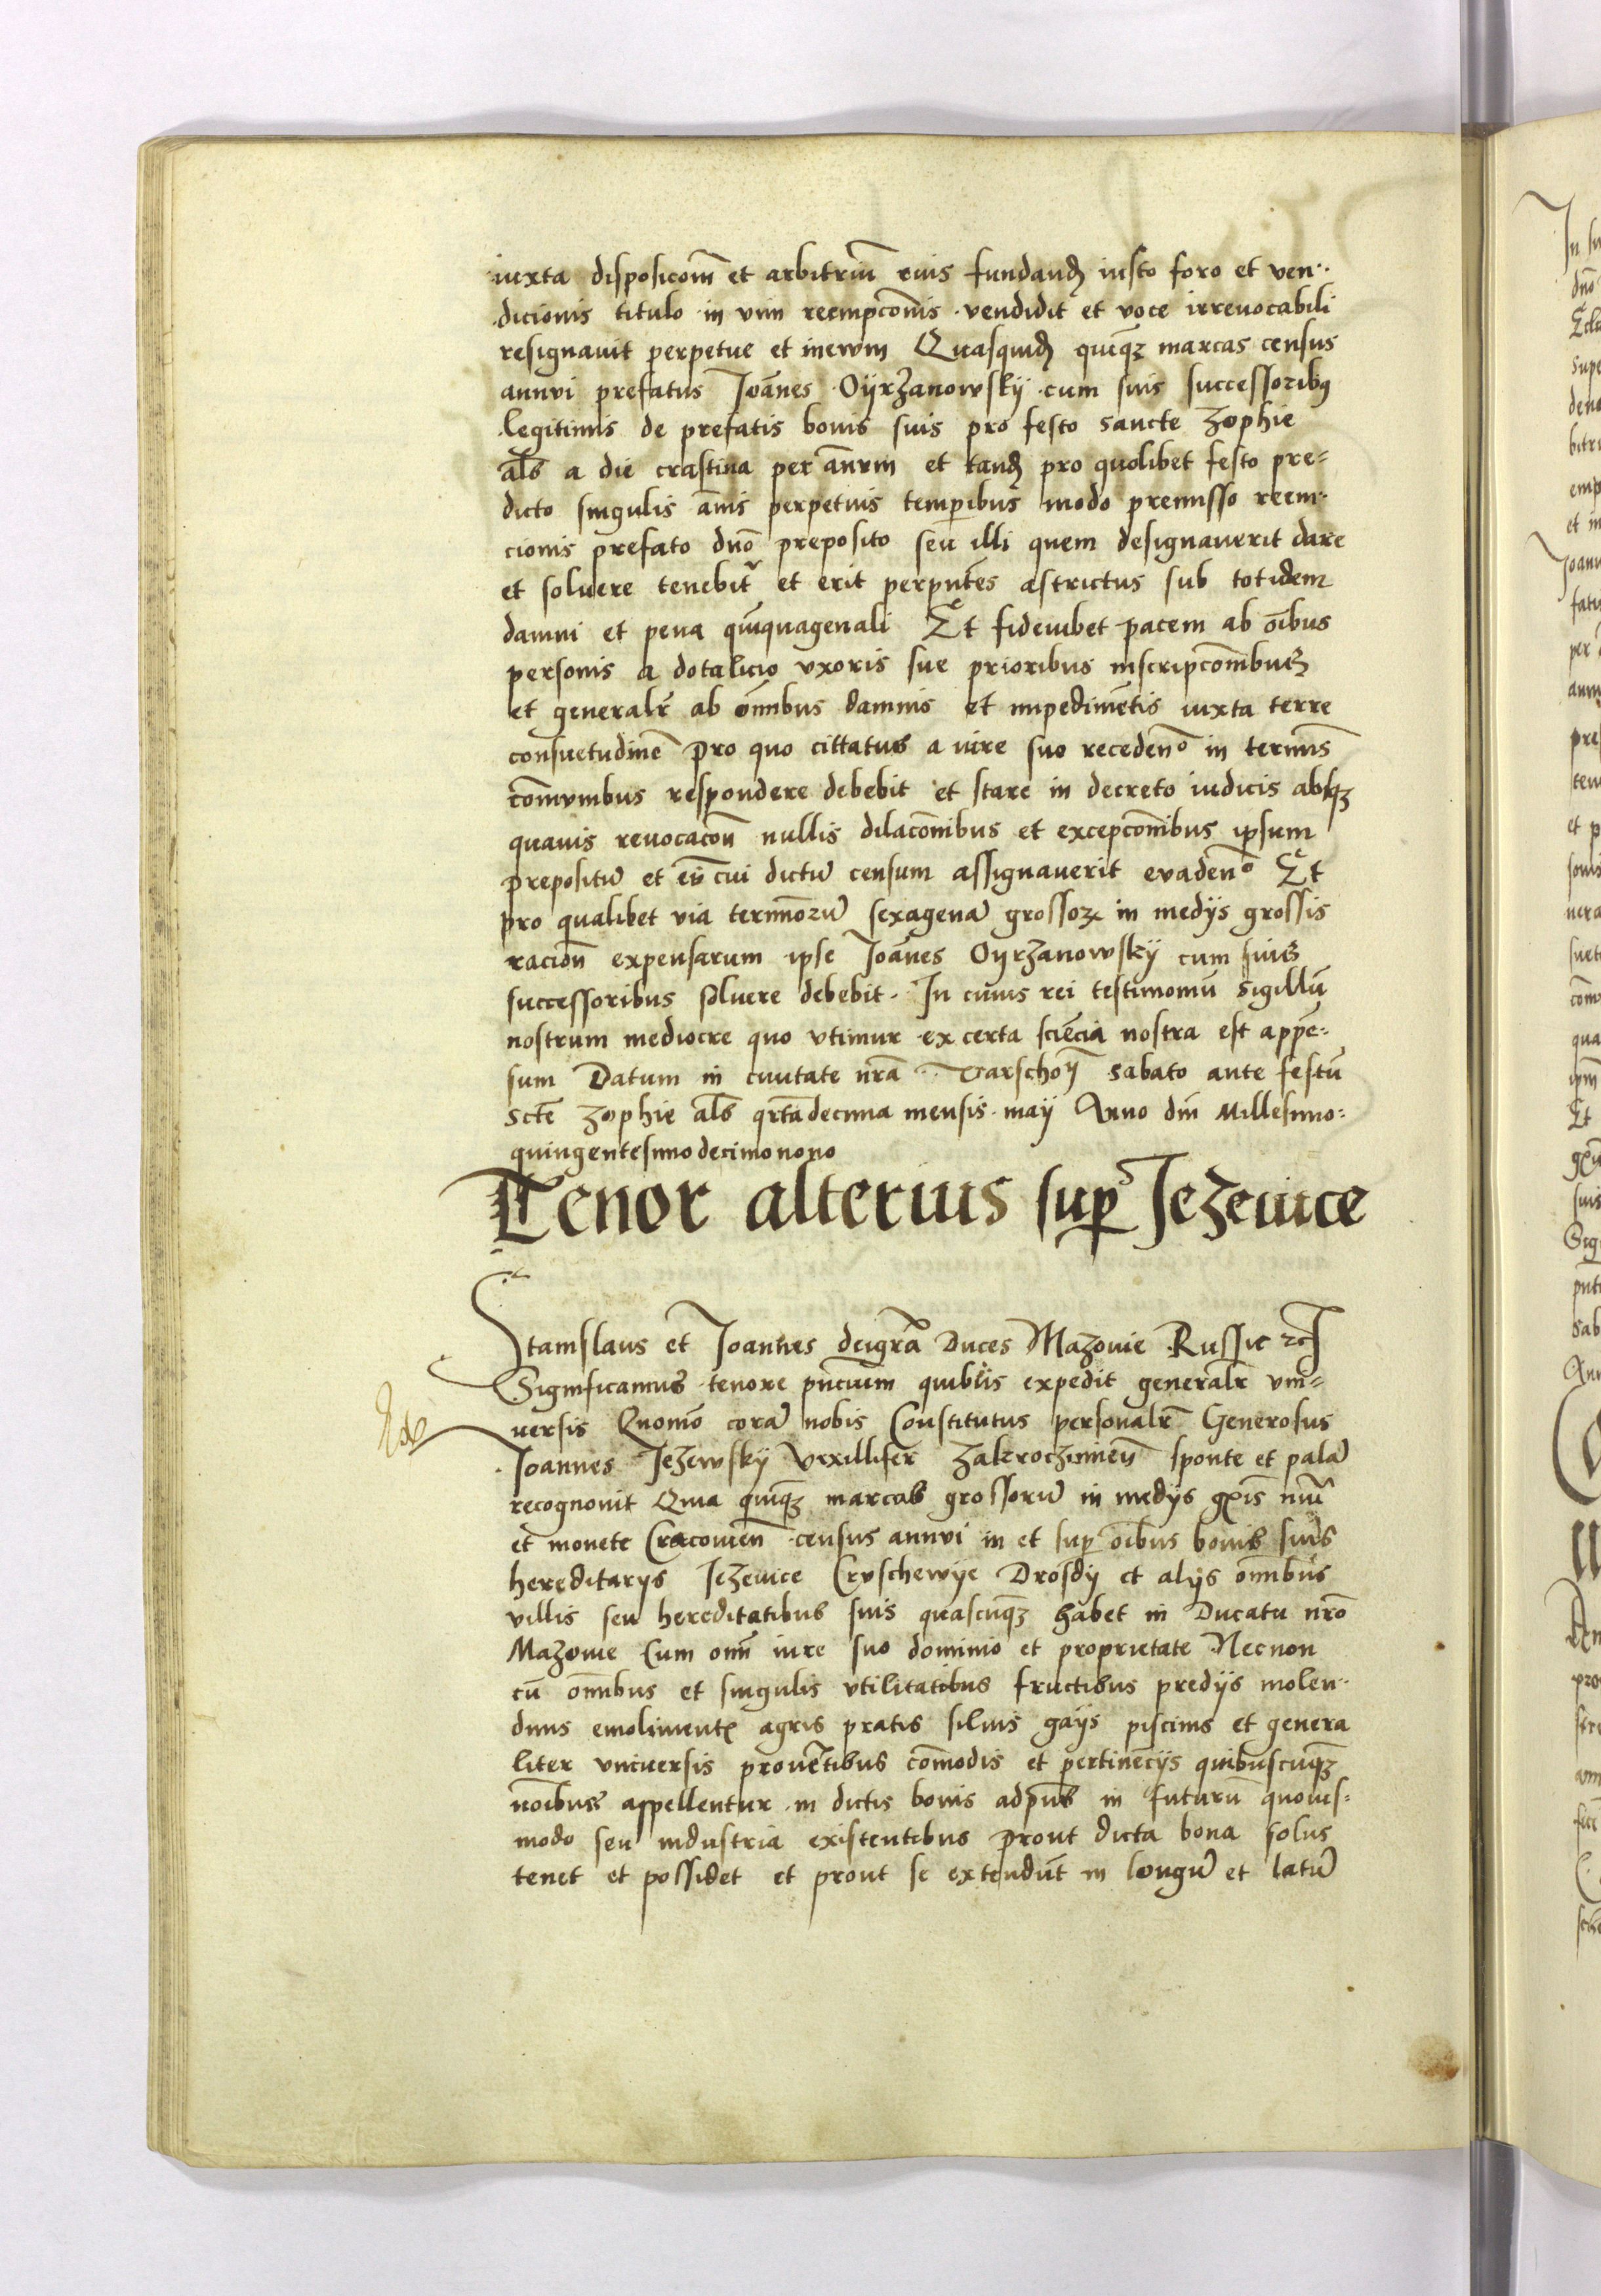 iuxta disposicoem et arbitriu eius fundand iusto foro et ven
dicionis titulo in vim reempcois vendidit et voce irreuocabili
resignauit perpetue et in ewm Quasquid quiqz marcas census
annvi prefatus Joanes Oyrzanowsky cum suis successoribus
legitimis de prefatis bonis suis pro festo sancte Zophie
als a die crastina per annvm et tand pro quolibet festo pre-
dicto singulis annis perpetuis temporibus modo premisso reem-
cionis prefato dno preposito seu illi quem designauerit dare
et soluere tenebitr et erit perpntes astrictus sub totidem
damni et pena quiquagenali Et fideiubet pacem ab oibus
personis a dotalicio vxoris sue prioribus inscripcoibus
et generalr ab omibus damnis et impedimetis iuxta terre
consuetudine Pro quo cittatus a iure suo recedeno in termis
comvnibus respondere debebit et stare in decreto iudicis absqz
quauis reuocacon nullis dilacoibus et excepcoibus ipsum
prepositu et eu cui dictu censum assignauerit evadeno Et
pro qualibet via terminoru sexagena grossorz in medys grossis
racion expensarum ipse Joanes Oyrzanowsky cum suis
successoribus soluere debebit. In cuius rei testimoniu sigillu
nostrum mediocre quo vtimur ex certa sciecia nostra est appe-
sum Datum in ciuitate nra Varschoy Sabato ante festu
scte Zophie als qrtadecima mensis may Anno dni Millesimo-
quingentesimodecimonono
Tenor alterius sup Jezeuice
Stanislaus et Joannes deigra Duces Mazouie Russie rc
Significamus tenore pncium quibus expedit generalr vni-
versis Quomo cora nobis Constitutus personalr Generosus
Joannes Jezewsky Vexillifer Zakroczimien sponte et pala
recognouit Quia quiqz marcas grossoru in medys gris nui
et monete Cracouien census annvi in et sup oibus bonis suis
hereditarys Jezeuice Cruschewye Drosdy et alys omibus
villis seu hereditatibus suis quascuqz habet in Ducatu nro
Mazouie Cum omi iure suo dominio et proprietate Necnon
cu omibus et singulis vtilitatibus fructibus predys molen-
dinis emoliment agris pratis siluis gays piscinis et genera
liter vniuersis prouetibus comodis et pertinecys quibuscuqz
noibus appellentur in dictis bonis adpns in futuru quouis-
modo seu industria existentibus prout dicta bona solus
tenet et possidet et prout se extendut in longu et latu